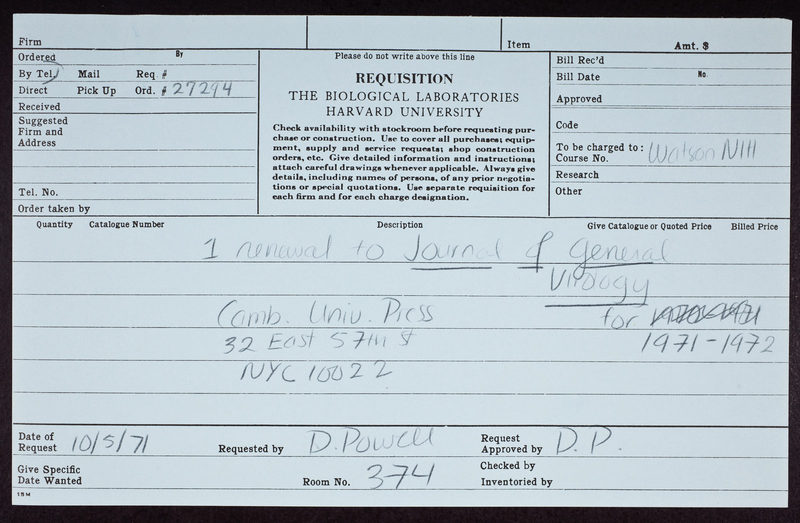 Firm
Item
Amt. $
Ordered By
By Tel. Mail Req #
Direct Pick Up Ord. # 27294
Received
Suggested
Firm and
Address
Tel. No.
Order taken by
Please do not write above this line
REQUISITION
THE BIOLOGICAL LABORATORIES
HARVARD UNIVERSITY
Check availability with stockroom before requesting pur-
chase or construction. Use to cover all purchases; equip-
ment, supply and service requests; shop construction
orders, etc. Give detailed information and instructions;
attach careful drawings whenever applicable. Always give
details, including names of persons, of any prior negotia-
tions or special quotations. Use separate requisition for
each firm and for each charge designation.
Bill Rec'd
Bill Date No.
Approved
Code
To be charged to: Watson NIH
Course No.
Research
Other
Quantity Catalogue Number Description Give Catalogue or Quoted Price Billed Price
1 renewal to Journal of General
Virology
Camb. Univ. Press for
32 East 57th St 1971-1972
NYC 10022
Date of
Request 10/5/71
Requested by D. Powell
Request
Approved by D.P.
Give Specific
Date Wanted
Room No. 374
Checked by
Inventoried by
15M